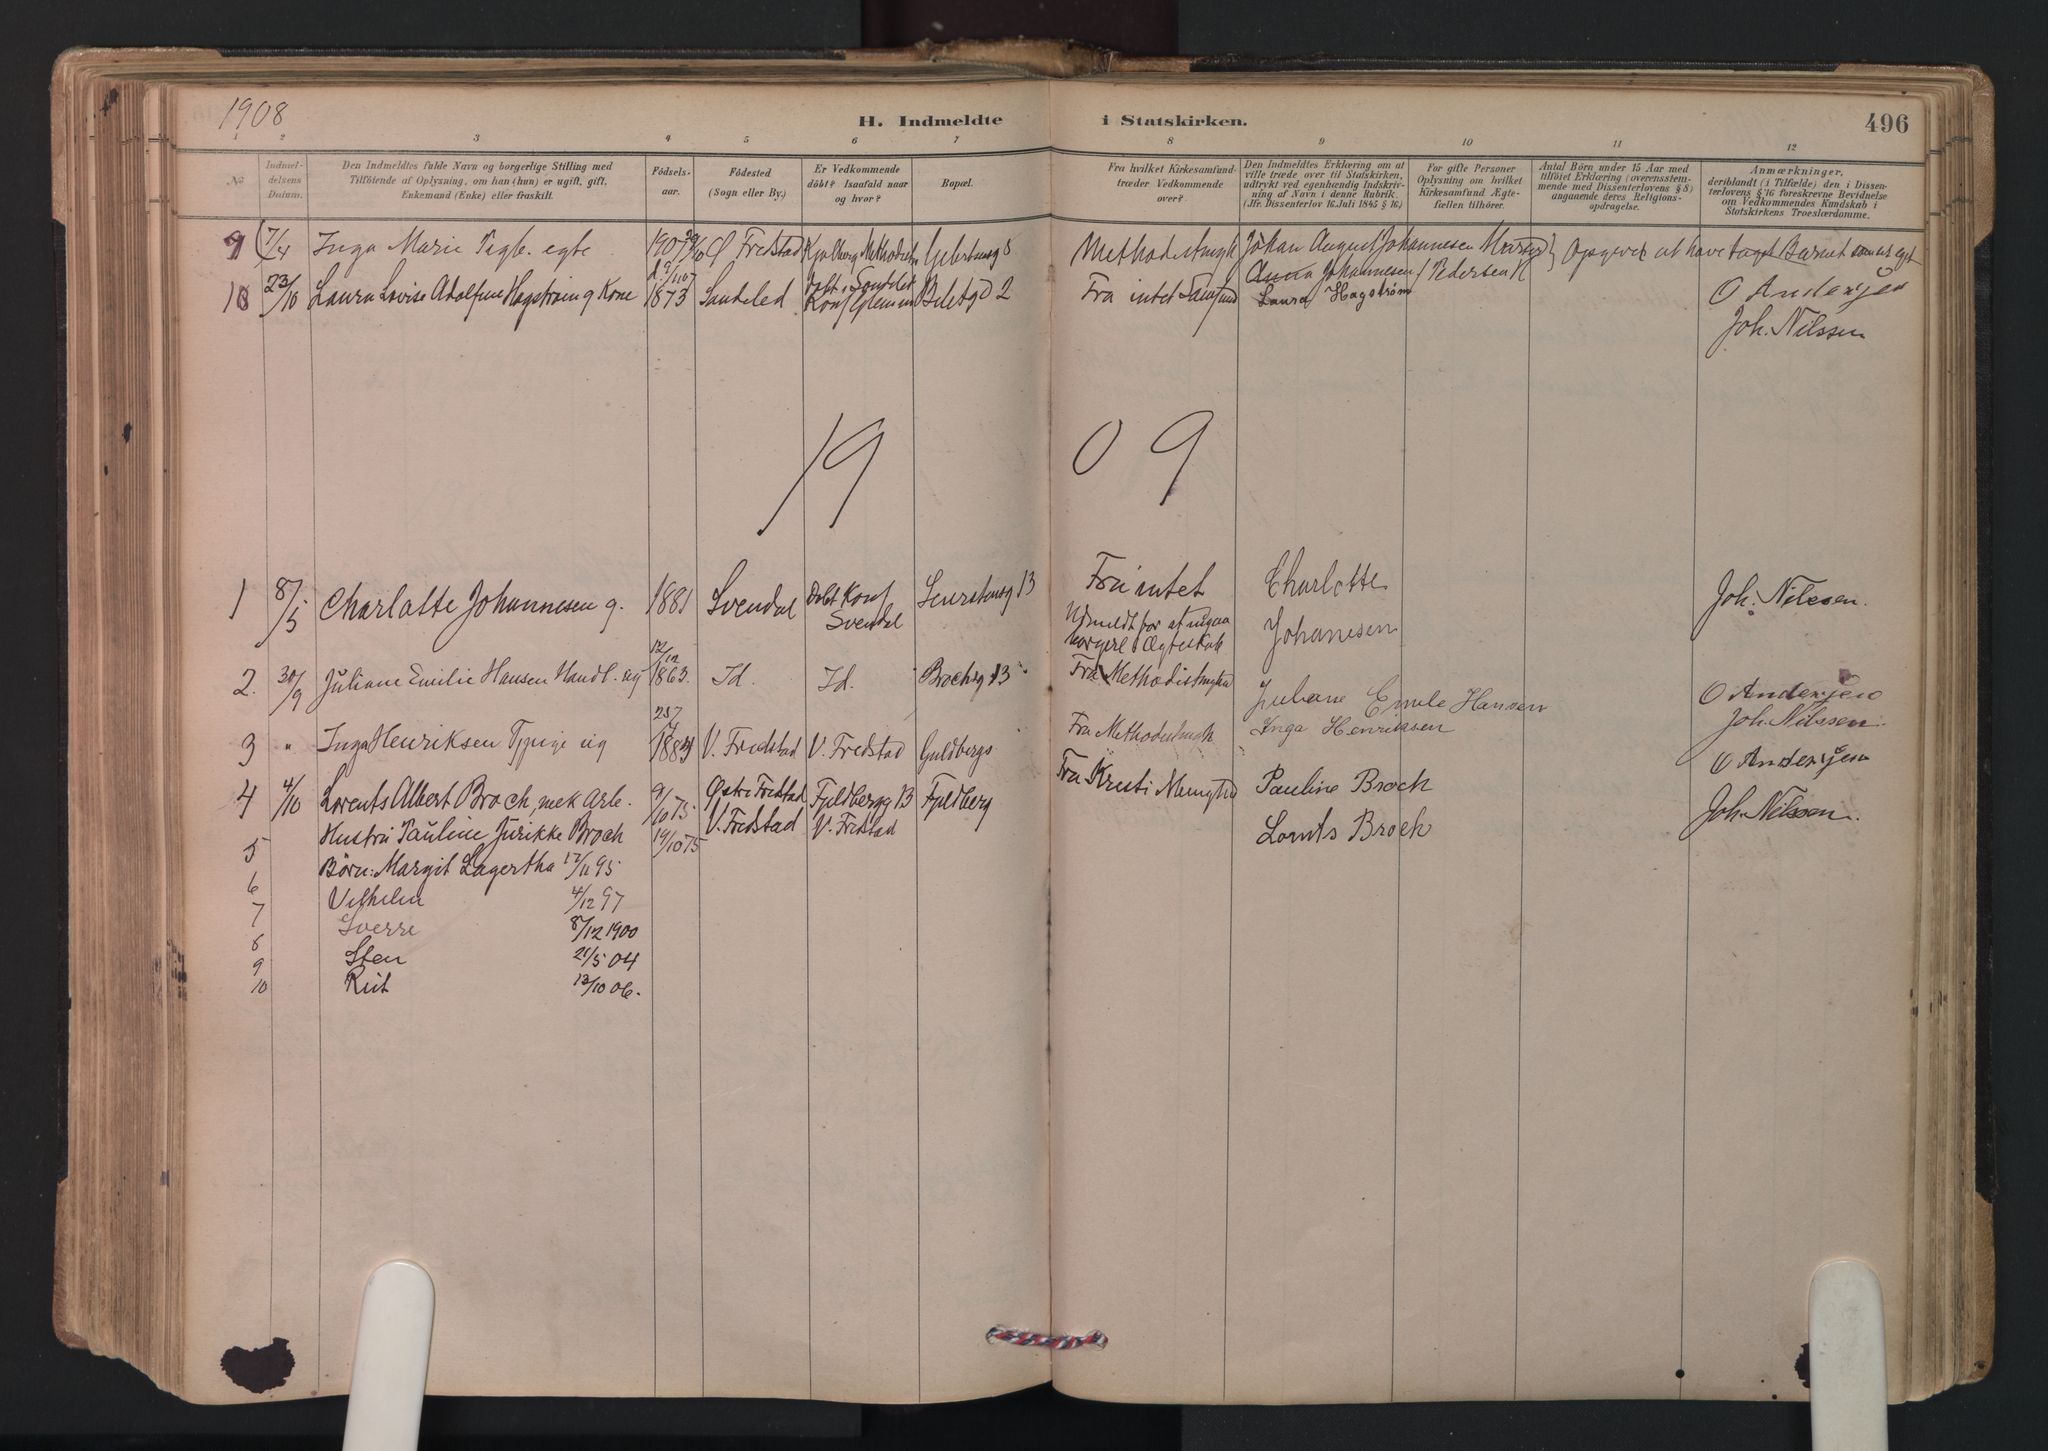 1908
H. Indmeldte i Statskirken.
496
1 2 3 4 5 6 7 8 9 10 11 12
No
Indmeldelsens Datum.
Den Indmeldtes fulde Navn og borgerlige Stilling med
Tilföiende af Oplysning, om han (hun) er ugift, gift,
Enkemand (Enke) eller fraskilt.
Födselsaar.
Födested
(Sogn eller By.)
Er Vedkommende
döbt? Isaafald naar
og hvor?
Bopæl.
Fra hvilket Kirkesamfund
træder Vedkommende
over?
Den Indmeldtes Erklæring om at
ville træde over til Statskirken,
udtrykt ved egenhændig Indskriv-
ning af Navn i denne Rubrik.
(Jfr. Dissenterlov 16 Juli 1845 § 16.)
For gifte Personer
Oplysning om hvilket
Kirkesamfund Ægte-
fællen tilhörer.
Antal Börn under 15 Aar med
tilföiet Erklæring (overensstem-
mende med Dissenterlovens § 8)
angaaende deres Religions-
opdragelse.
Anmærkninger,
deriblandt (i Tilfælde) den i Dissen-
terlovens § 16 foreskrevne Bevidnelse
om Vedkommendes Kundskab i
Statskirkens Troeslærdomme.
9 7/4 Inga Marie egte 1907 Fredstad Johan August Johannesen Opgiver at have taget Barnet som er eget
Anna Johannesen Pedersen
10 23/10 Laura Lovise Adolfine Hagstrøm g Kone 1873 Søndeled Konf Glemmen 2 Fra intet Samfund Laura Hagstrøm O Andersen
Joh. Nilssen
1909
1 8/5 Charlotte Johannesen g. 1881 Svendal Døbt Konf Svendal 13 Fra intet Charlotte Johannesen Joh. Nilssen.
Udmeldt for at indgaa
borgerl Ægteskab
2. 30/9 Juliane Emilie Hansen Handl. ug 12/12 1863. Id. Id. Brochsg 13 Fra Methodistmghd Juliane Emile Hansen O Andersen
Joh. Nilssen.
3 " Inga Henriksen ug V. Fredstad V. Fredstad Guldbergs Inga Henriksen
O Andersen
4 4/10 Lorents Albert Broch, mek Arb. 9/10 75. Østre Fredstad 13 Fra Kristi Menighed Pauline Broch
Joh. Nilssen.
5 Hustru Pauline Jurikke Broch 19/10 75 V. Fredstad V. Fredstad Lornts Broch
6 Børn: Margit Lagertha 17/11 95
7 Vilhelm 4/12 97
8 Sverre 8/12 1900
9 Sten 21/5 04
10 Rut 13/10 06.